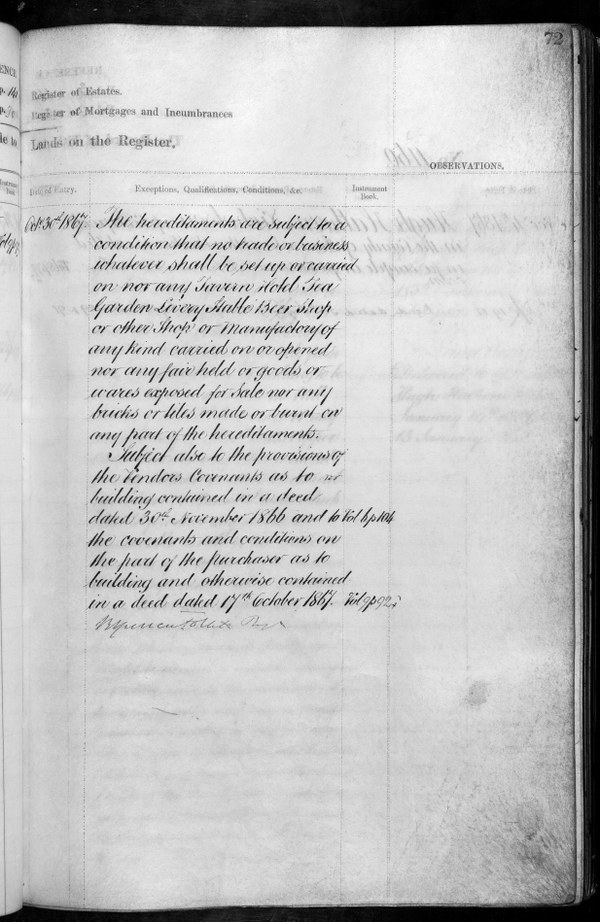 72
ENCE
Register of Estates.
Register of Mortgages and Incumbrances
Lands on the Register.
OBSERVATIONS.
Date of Entry.
Exceptions, Qualifications, Conditions, &c.
Instrument Book.
Oct. 30th 1867.
The hereditaments are subject to a
condition that no trade or business
whatever shall be set up or carried
on nor any Tavern Hotel Tea
Garden Livery Stable Beer Shop
or other Shop or Manufactory of
any kind carried on or opened
nor any fair held or goods or
wares exposed for Sale nor any
bricks or tiles made or burnt on
any part of the hereditaments.
Subject also to the provisions of
the Vendors Covenants as to
building contained in a deed
dated 30th November 1866 and to Vol 4 p 104
the covenants and conditions on
the part of the purchaser as to
building and otherwise contained
in a deed dated 17th October 1867. Vol 9 p 92